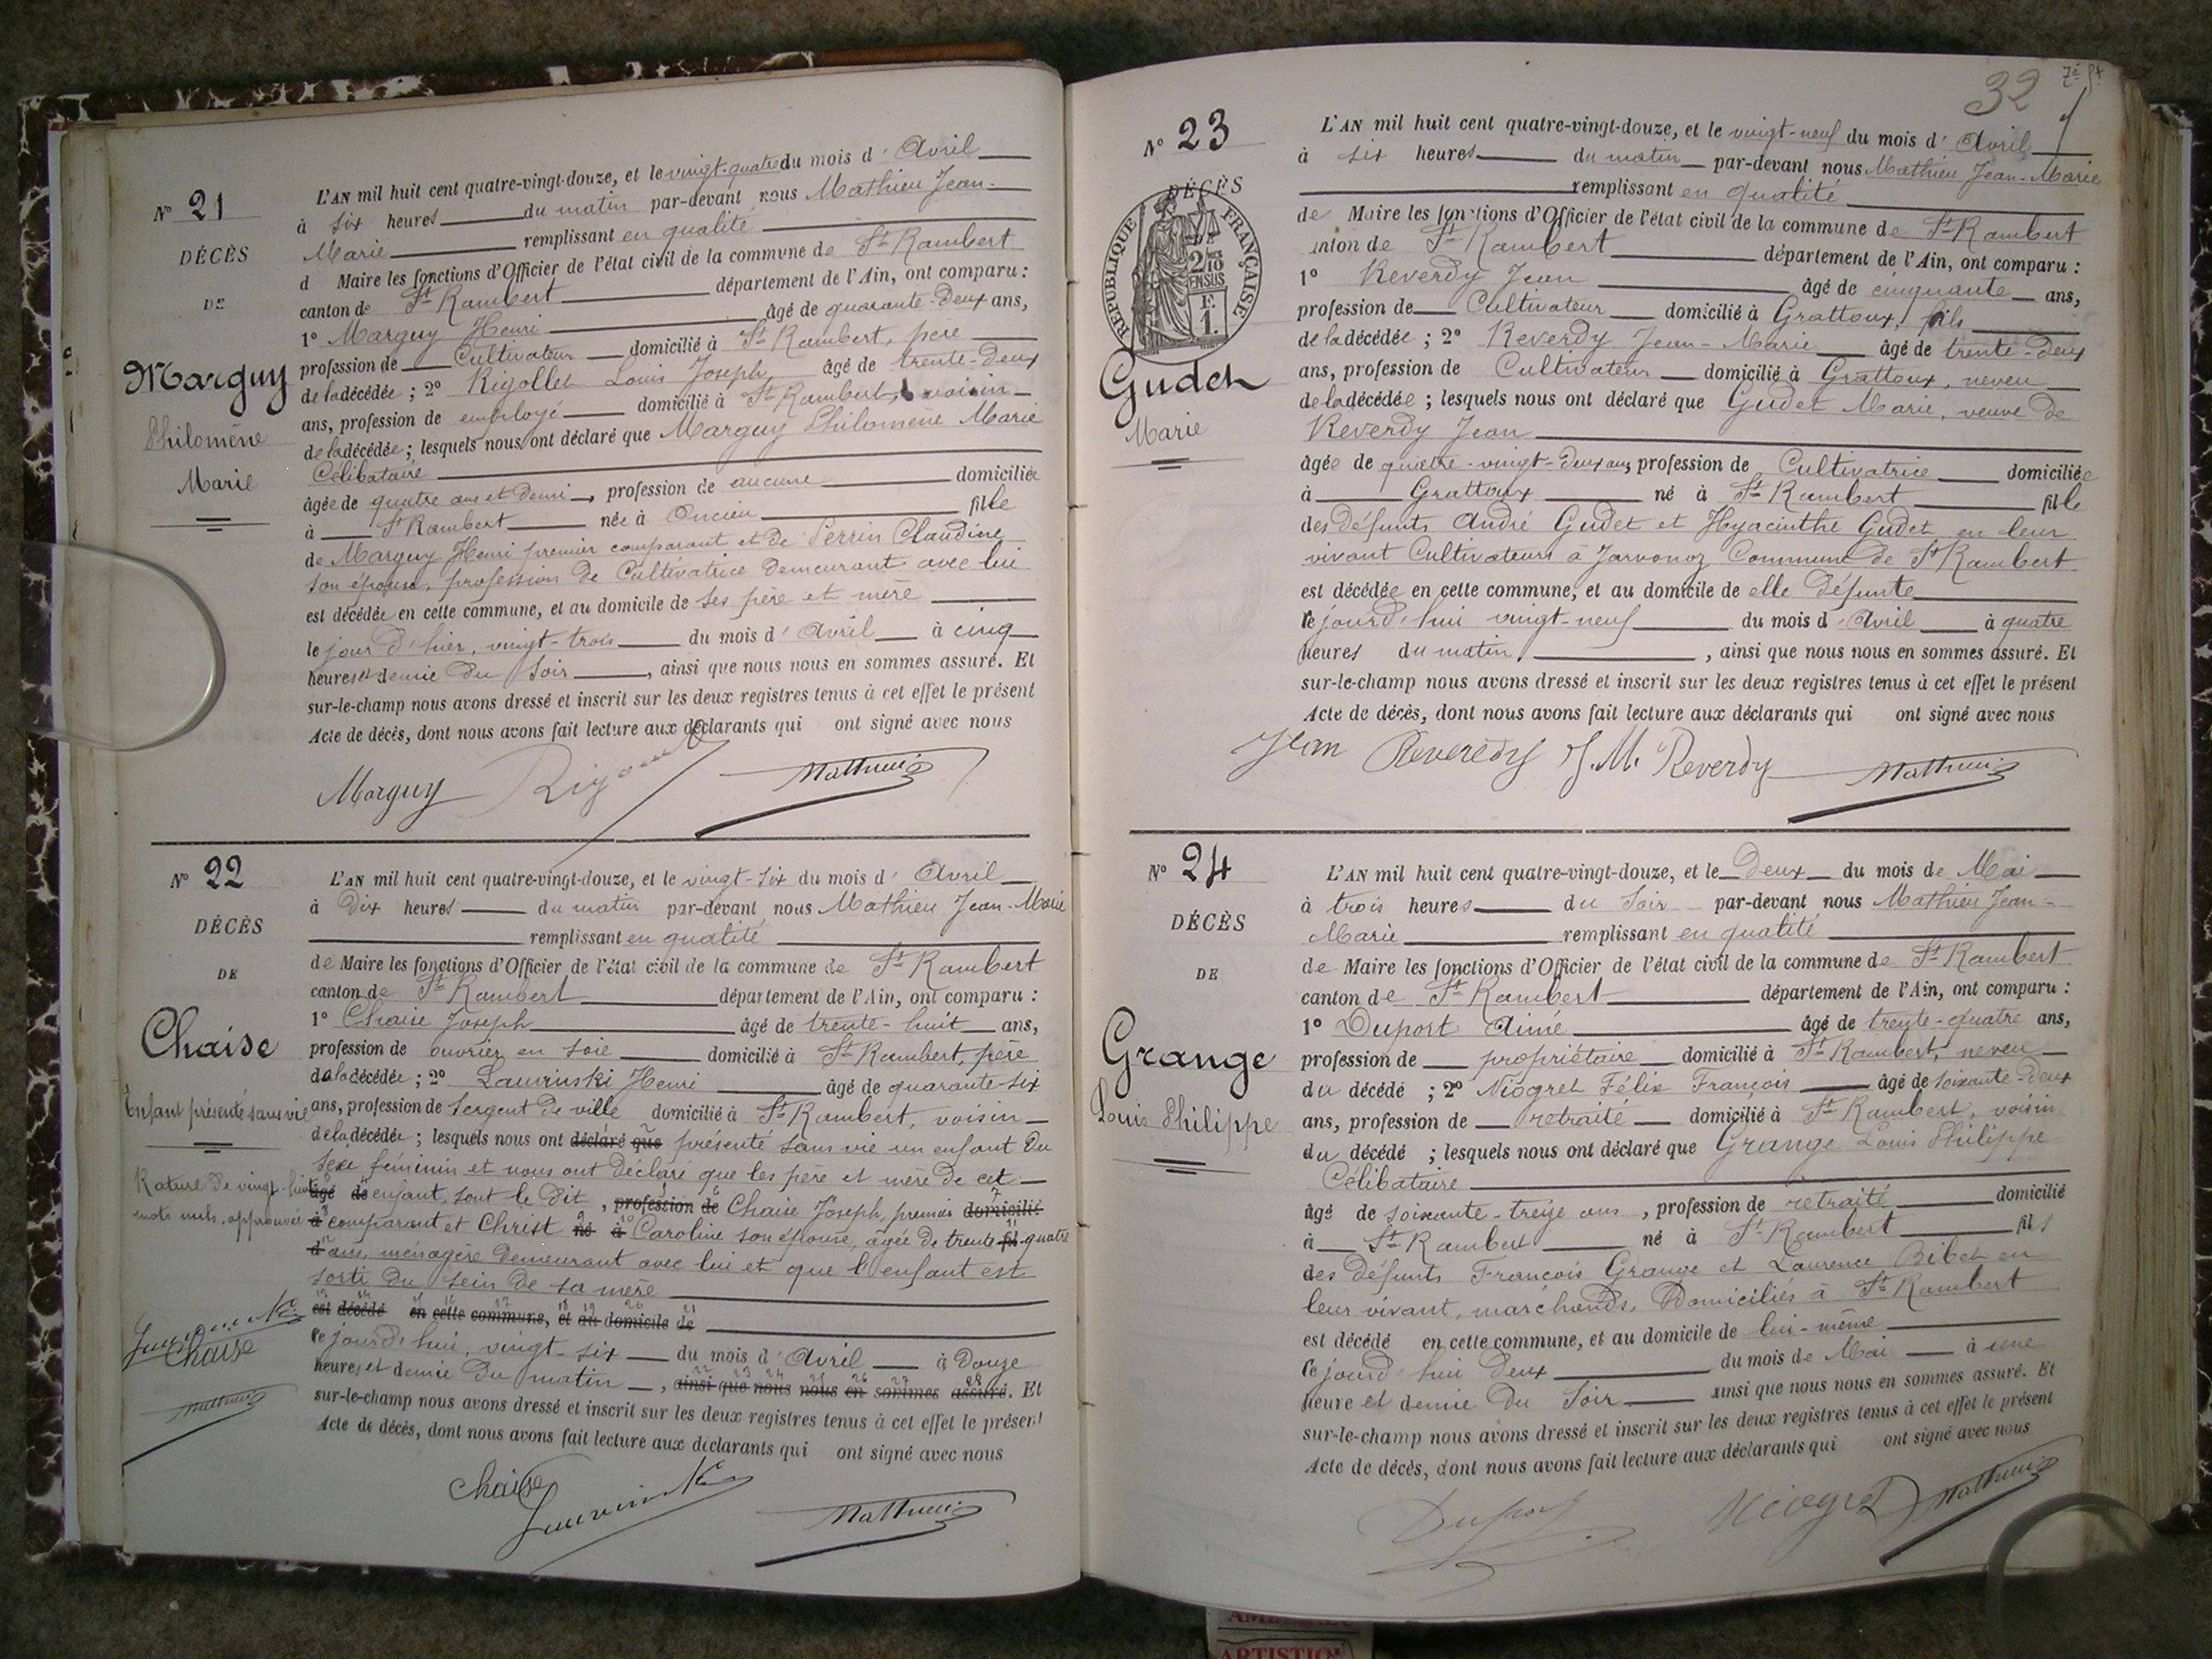 N° 21
DÉCÈS
DE
Marguy
Philomène
Marie
L'AN mil huit cent quatre-vingt-douze, et le vingt-quatre du mois d'Avril
à six heures du matin par-devant nous Mathieu Jean-
Marie remplissant en qualité
d Maire les fonctions d'Officier de l'état civil de la commune de St Rambert
canton de St Rambert département de l'Ain, ont comparu :
1° Marguy Henri âgé de quarante-deux ans,
profession de Cultivateur domicilié à St Rambert, père
de la décédée ; 2° Rigollet Louis Joseph âgé de trente-deux
ans, profession de employé domicilié à St Rambert, voisin
de la décédée ; lesquels nous ont déclaré que Marguy Philomène Marie
Célibataire
âgée de quatre ans et demi, profession de aucune domiciliée
à St Rambert née à Oncieu fille
de Marguy Henri premier comparant et de Perrin Claudine
son épouse, profession de Cultivatrice demeurant avec lui
est décédée en cette commune, et au domicile de ses père et mère
le jour d'hier, vingt-trois du mois d'Avril à cinq
heures et demie du soir, ainsi que nous nous en sommes assuré. Et
sur-le-champ nous avons dressé et inscrit sur les deux registres tenus à cet effet le présent
Acte de décès, dont nous avons fait lecture aux déclarants qui ont signé avec nous
Marguy Mathieu
N° 22
DÉCÈS
DE
Chaise
Enfant présenté sans vie
Rature de vingt-huit
mots nuls, approuvée
Chaise
Mathieu
L'AN mil huit cent quatre-vingt-douze, et le vingt-six du mois d'Avril
à Dix heures du matin par-devant nous Mathieu Jean-Marie
remplissant en qualité
de Maire les fonctions d'Officier de l'état civil de la commune de St Rambert
canton de St Rambert département de l'Ain, ont comparu :
1° Chaise Joseph âgé de trente-huit ans,
profession de ouvrier en soie domicilié à St Rambert, père
de la décédée ; 2° Lauvinski Henri âgé de quarante-six
ans, profession de Sergent de ville domicilié à St Rambert, voisin
de la décédée ; lesquels nous ont déclaré que présenté sans vie un enfant du
sexe féminin et nous ont déclaré que les père et mère de cet
âgé de enfant, sont le dit, profession de Chaise Joseph, premier domicilié
à comparant et Christ né à Caroline son épouse, âgée de trente fil quatre
d ans, ménagère demeurant avec lui et que l'enfant est
sorti du sein de sa mère
est décédé en cette commune, et au domicile de
ce jourd'hui, vingt-six du mois d'Avril à Douze
heures et demie du matin, ainsi que nous nous en sommes assuré. Et
sur-le-champ nous avons dressé et inscrit sur les deux registres tenus à cet effet le présent
Acte de décès, dont nous avons fait lecture aux déclarants qui ont signé avec nous
Chaise
Mathieu
32
N° 23
DÉCÈS
RÉPUBLIQUE FRANÇAISE
2/10
EN SUS
F.
1.
Gudet
Marie
L'AN mil huit cent quatre-vingt-douze, et le vingt-neuf du mois d'Avril
à six heures du matin par-devant nous Mathieu Jean-Marie
remplissant en qualité
de Maire les fonctions d'Officier de l'état civil de la commune de St Rambert
canton de St Rambert département de l'Ain, ont comparu :
1° Reverdy Jean âgé de cinquante ans,
profession de Cultivateur domicilié à Grattoux, fils
de la décédée ; 2° Reverdy Jean-Marie âgé de trente-deux
ans, profession de Cultivateur domicilié à Grattoux, neveu
de la décédée ; lesquels nous ont déclaré que Gudet Marie, veuve de
Reverdy Jean
âgée de quatre-vingt-deux ans, profession de Cultivatrice domiciliée
à Grattoux né à St Rambert fille
des Défunts André Gudet et Hyacinthe Gudet en leur
vivant Cultivateurs à Javonoz Commune de St Rambert
est décédée en cette commune, et au domicile de elle Défunte
ce jourd'hui vingt-neuf du mois d'Avril à quatre
heures du matin, ainsi que nous nous en sommes assuré. Et
sur-le-champ nous avons dressé et inscrit sur les deux registres tenus à cet effet le présent
Acte de décès, dont nous avons fait lecture aux déclarants qui ont signé avec nous
Jean Reveredy J. M. Reverdy Mathieu
N° 24
DÉCÈS
DE
Grange
Louis Philippe
L'AN mil huit cent quatre-vingt-douze, et le Deux du mois de Mai
à trois heures du Soir par-devant nous Mathieu Jean-
Marie remplissant en qualité
de Maire les fonctions d'Officier de l'état civil de la commune de St Rambert
canton de St Rambert département de l'Ain, ont comparu :
1° Duport Aimé âgé de trente-quatre ans,
profession de propriétaire domicilié à St Rambert, neveu
du décédé ; 2° Niogret Félix François âgé de soixante-deux
ans, profession de retraité domicilié à St Rambert, voisin
du décédé ; lesquels nous ont déclaré que Grange Louis Philippe
Célibataire
âgé de soixante-treize ans, profession de retraité domicilié
à St Rambert né à St Rambert fils
des Défunts François Grange et Laurence Bibet en
leur vivant, marchands, Domiciliés à St Rambert
est décédé en cette commune, et au domicile de lui-même
ce jourd'hui deux du mois de Mai à une
heure et demie du Soir ainsi que nous nous en sommes assuré. Et
sur-le-champ nous avons dressé et inscrit sur les deux registres tenus à cet effet le présent
Acte de décès, dont nous avons fait lecture aux déclarants qui ont signé avec nous
Duport Niogret Mathieu
ARTISTIQ